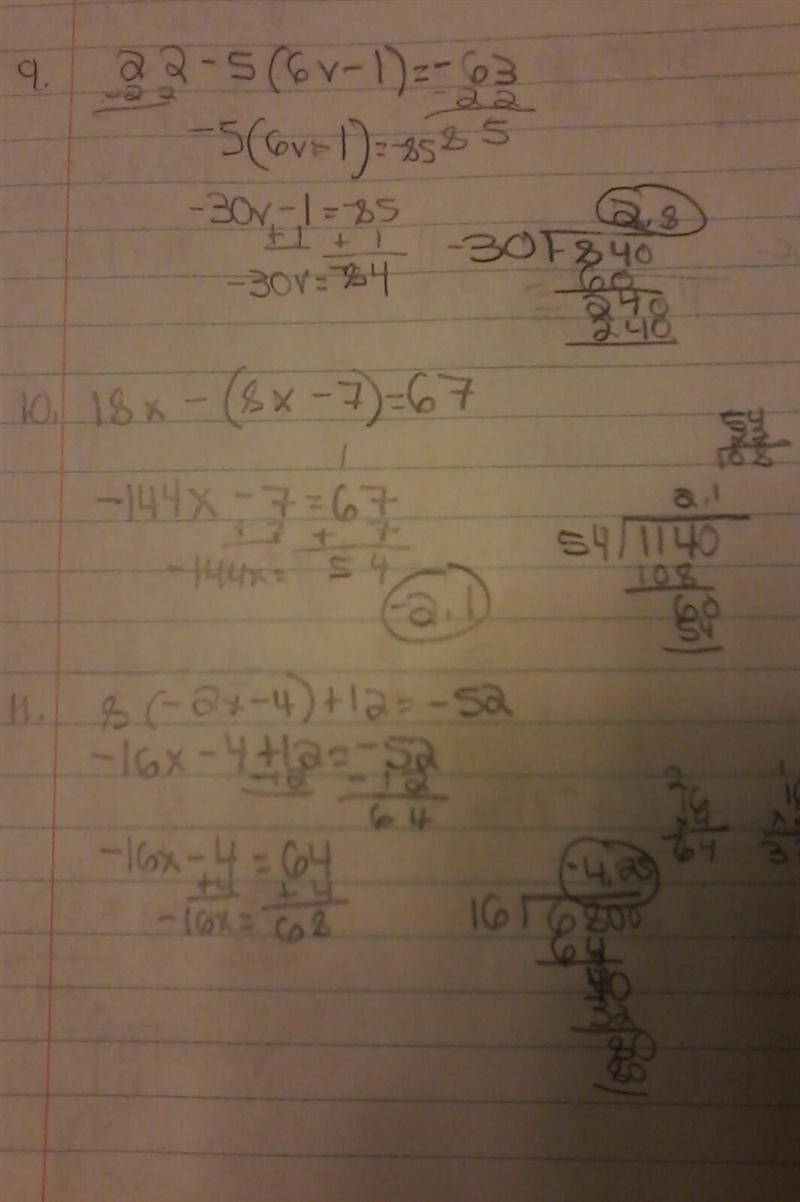 9. 22 - 5(6v - 1) = -63
-22 -22
-5(6v - 1) = -85 85
-30v - 1 = -85
+1 + 1
-30v = -84
2.8
-30 -840
60
240
240
10. 18x - (8x - 7) = 67
1
-144x - 7 = 67
+7 + 7
-144x = 54
-2.1
2.1
54 1140
108
60
54
11. 8(-2x - 4) + 12 = -52
-16x - 4 + 12 = -52
-12 - 12
64
-16x - 4 = 64
+4 + 4
-16x = 68
-4.25
16 6800
64